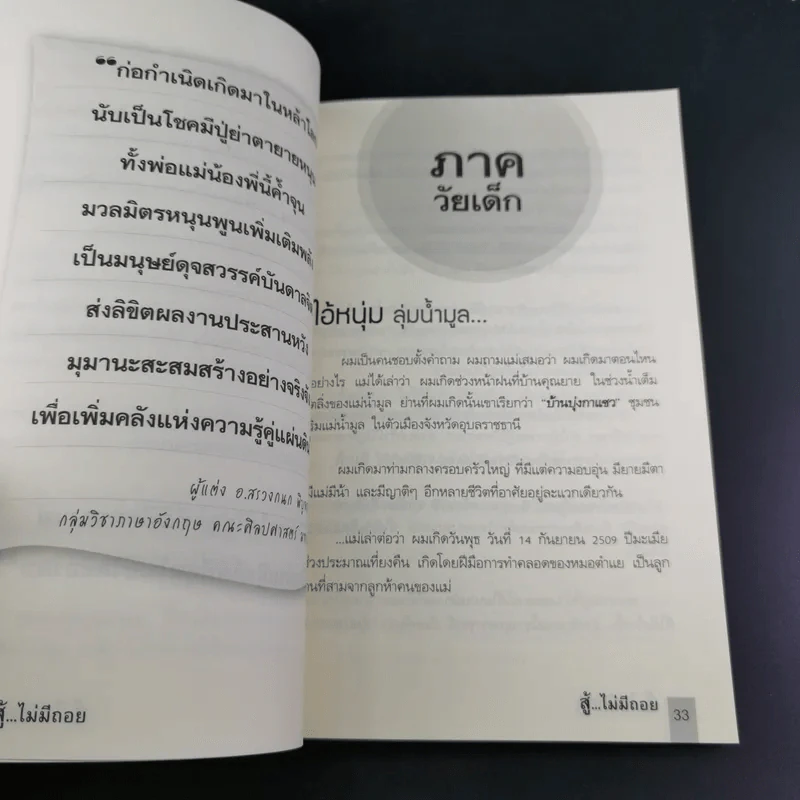 “ก่อกำเนิดเกิดมาในหล้า
นับเป็นโชคมีปู่ย่าตายายหนุน
ทั้งพ่อแม่น้องพี่นี้ค้ำจุน
มวลมิตรหนุนพูนเพิ่มเติมพลัง
เป็นมนุษย์ดุจสวรรค์บันดาล
ส่งลิขิตผลงานประสานหวัง
มุมานะสะสมสร้างอย่างจริงจัง
เพื่อเพิ่มคลังแห่งความรู้คู่แผ่นดิน
ผู้แต่ง อ.สรวงกนก
กลุ่มวิชาภาษาอังกฤษ คณะศิลปศาสตร์
สู้...ไม่มีถอย
ภาค
วัยเด็ก
ไอ้หนุ่ม ลุ่มน้ำมูล...
ผมเป็นคนชอบตั้งคำถาม ผมถามแม่เสมอว่า ผมเกิดมาตอนไหน
อย่างไร แม่ได้เล่าว่า ผมเกิดช่วงหน้าฝนที่บ้านคุณยาย ในช่วงน้ำเต็ม
ตลิ่งของแม่น้ำมูล ย่านที่ผมเกิดนั้นเขาเรียกว่า “บ้านบุ่งกาแซว” ชุมชน
ริมแม่น้ำมูล ในตัวเมืองจังหวัดอุบลราชธานี
ผมเกิดมาท่ามกลางครอบครัวใหญ่ ที่มีแต่ความอบอุ่น มียายมีตา
มีแม่มีน้า และมีญาติๆ อีกหลายชีวิตที่อาศัยอยู่ละแวกเดียวกัน
...แม่เล่าต่อว่า ผมเกิดวันพุธ วันที่ 14 กันยายน 2509 ปีมะเมีย
ช่วงประมาณเที่ยงคืน เกิดโดยฝีมือการทำคลอดของหมอตำแย เป็นลูก
คนที่สามจากลูกห้าคนของแม่
สู้...ไม่มีถอย
33